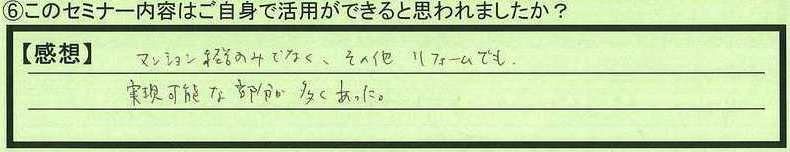 ⑥このセミナー内容はご自身で活用ができると思われましたか？
【感想】 マンション経営のみでなく、その他リフォームでも、
実現可能な部分が多くあった。